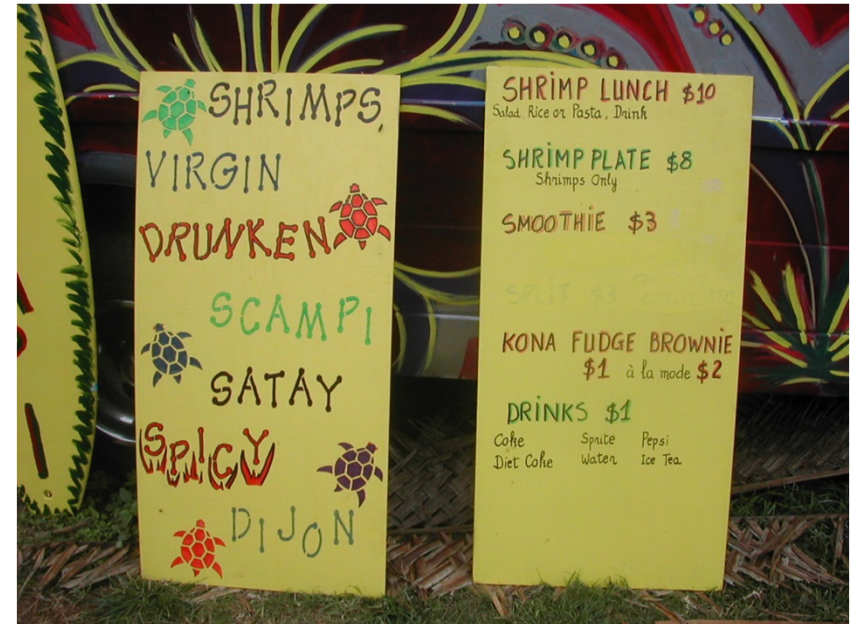 SHRIMPS
VIRGIN
DRUNKEN
SCAMPI
SATAY
SPICY
DIJON
SHRIMP LUNCH $10
Salad, Rice or Pasta, Drink
SHRIMP PLATE $8
Shrimps Only
SMOOTHIE $3
SPLIT $3
KONA FUDGE BROWNIE
$1 à la mode $2
DRINKS $1
Coke Sprite Pepsi
Diet Coke Water Ice Tea